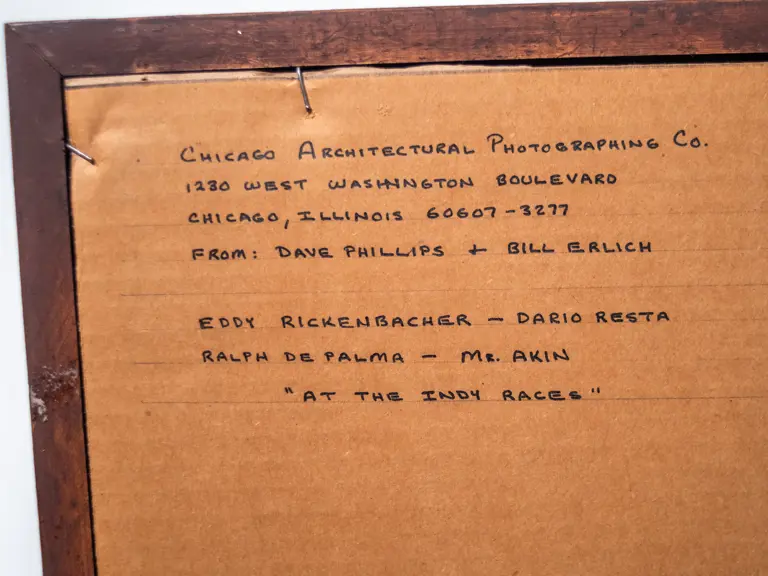 CHICAGO ARCHITECTURAL PHOTOGRAPHING CO.
1230 WEST WASHINGTON BOULEVARD
CHICAGO, ILLINOIS 60607-3277
FROM: DAVE PHILLIPS + BILL ERLICH
EDDY RICKENBACHER - DARIO RESTA
RALPH DE PALMA - MR. AKIN
"AT THE INDY RACES"